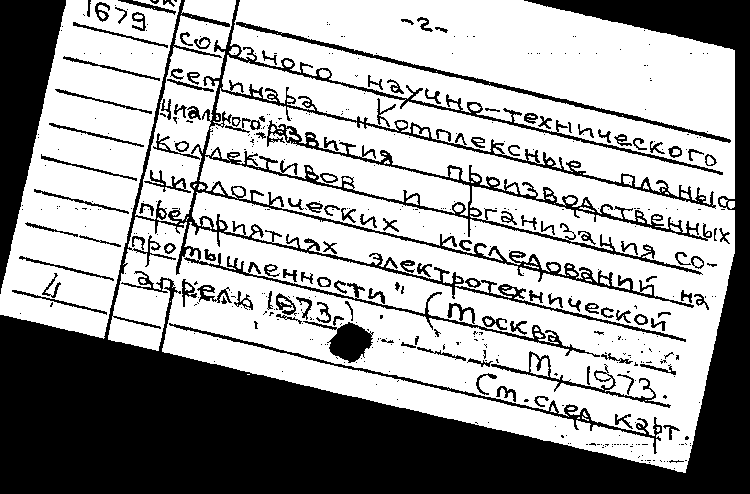 -2-
1679
союзного научно-технического
семинара „Комплексные планы со
циального развития производственных
коллективов и организация со-
циологических исследований на
предприятиях электротехнической
промышленности" (Москва,
апрель 1973г.).
М., 1973.
4
См. след. карт.